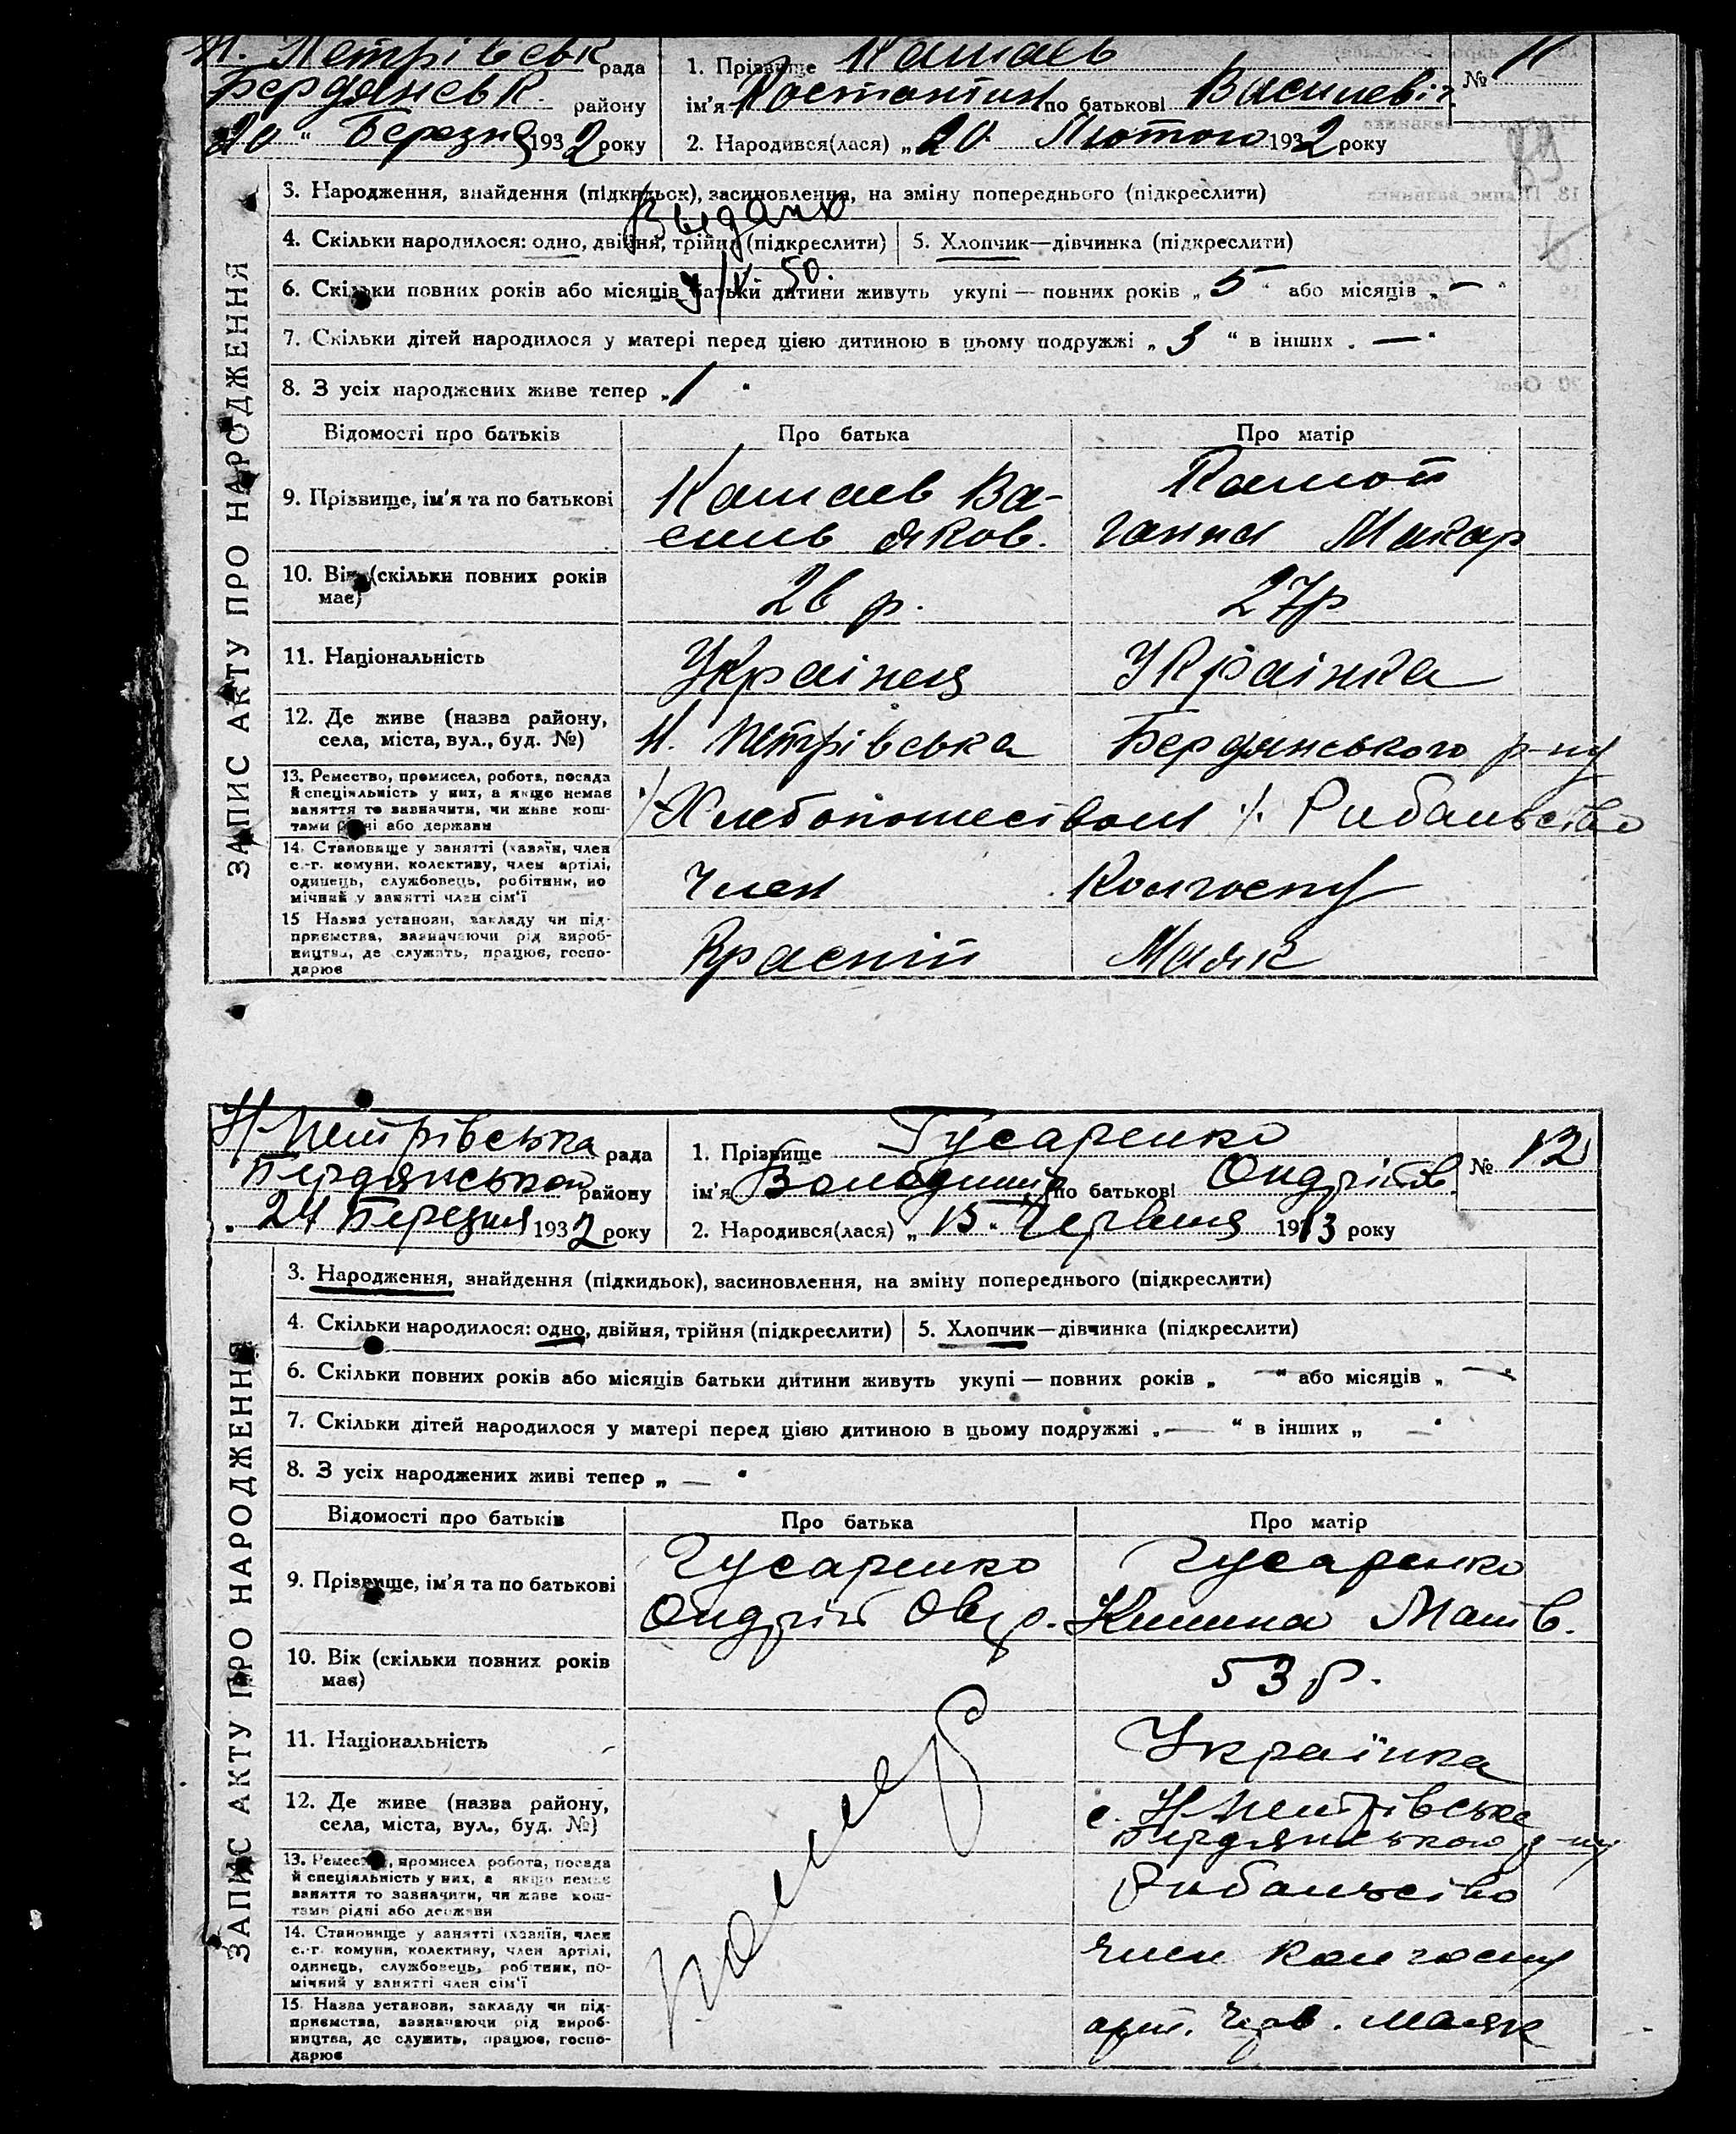 Н. Петрівськ рада
Бердянськ. району
"20" Березня 1932 року
1. Прізвище Кашаєв
№ 11
ім'я Костантин по батькові Василевіч
2. Народився(лася) „20" Лютого 1932 року
3. Народження, знайдення (підкидьок), засиновлення, на зміну попереднього (підкреслити)
Выдано
4. Скільки народилося: одно, двійня, трійня (підкреслити)
5. Хлопчик—дівчинка (підкреслити)
/V-50.
6. Скільки повних років або місяців батьки дитини живуть укупі — повних років „5" або місяців „—"
7. Скільки дітей народилося у матері перед цією дитиною в цьому подружжі „3" в інших „—"
8. З усіх народжених живе тепер „1"
Відомості про батьків Про батька Про матір
9. Прізвище, ім'я та по батькові
Кашаев Ва-
силь Яков.
Ганна Макар
10. Вік (скільки повних років має)
26 р. 27р
11. Національність Українец Українка
12. Де живе (назва району,
села, міста, вул., буд. №)
Н. Петрівська Бердянського р-ну
13. Ремество, промисел, робота, посада
й спеціяльність у них, а якщо немає
заняття то зазначити, чи живе кош-
тами рідні або держави
Рибальство
14. Становище у занятті (хазяїн, член
с.-г. комуни, колективу, член артілі,
одинець, службовець, робітник, по
мічний у занятті член сім'ї
Член Колгоспу
15 Назва установи, закладу чи під-
приємства, зазначаючи рід вироб-
ництва, де служить, працює, госпо-
дарює
Красний Маяк
ЗАПИС АКТУ ПРО НАРОДЖЕННЯ
Н-Петрівська рада
Бердянського району
„24 Березня 1932 року
1. Прізвище Гусаренко
№ 12
ім'я Володимир по батькові Ондріїв.
2. Народився(лася) „15" Червня 1913 року
3. Народження, знайдення (підкидьок), засиновлення, на зміну попереднього (підкреслити)
4. Скільки народилося: одно, двійня, трійня (підкреслити)
5. Хлопчик—дівчинка (підкреслити)
6. Скільки повних років або місяців батьки дитини живуть укупі — повних років „—" або місяців „—"
7. Скільки дітей народилося у матері перед цією дитиною в цьому подружжі „—" в інших „—"
8. З усіх народжених живі тепер „—"
Відомості про батьків Про батька Про матір
9. Прізвище, ім'я та по батькові
Гусаренко Гусаренко
Ондрій Матв.
10. Вік (скільки повних років
має)
53 р.
11. Національність Українка
12. Де живе (назва району,
села, міста, вул., буд. №)
с. Н-Петрівське
Бердянського р-ну
13. Ремество, промисел робота, посада
й спеціяльність у них, а якщо немає
заняття то зазначити, чи живе кош-
тами рідні або держави
Рибальство
14. Становище у занятті (хазяїн, член
с.-г. комуни, колективу, член артілі,
одинець, службовець, робітник, по-
мічний у занятті член сім'ї
член колгоспу
15. Назва установи, закладу чи під-
приємства, зазначаючи рід вироб-
ництва, де служить, працює, госпо-
дарює
арт. Черв. Маяк
помер
ЗАПИС АКТУ ПРО НАРОДЖЕННЯ